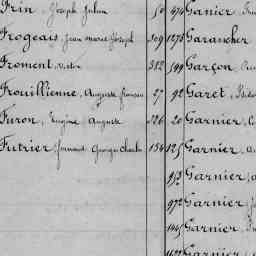 Frin, Joseph Julien 50 474 Ganier
Frogeais, Jean Marie Joseph 309 1278 Garancher
Froment, Victor 382 599 Garçon
Frouillienne, Auguste François 27 92 Garet
Furon, Eugène Auguste 326 20 Garnier
Futrier, Fernand Georges Charles 154 125 Garnier
953 Garnier
972 Garnier
1445 Garnier
Garnier